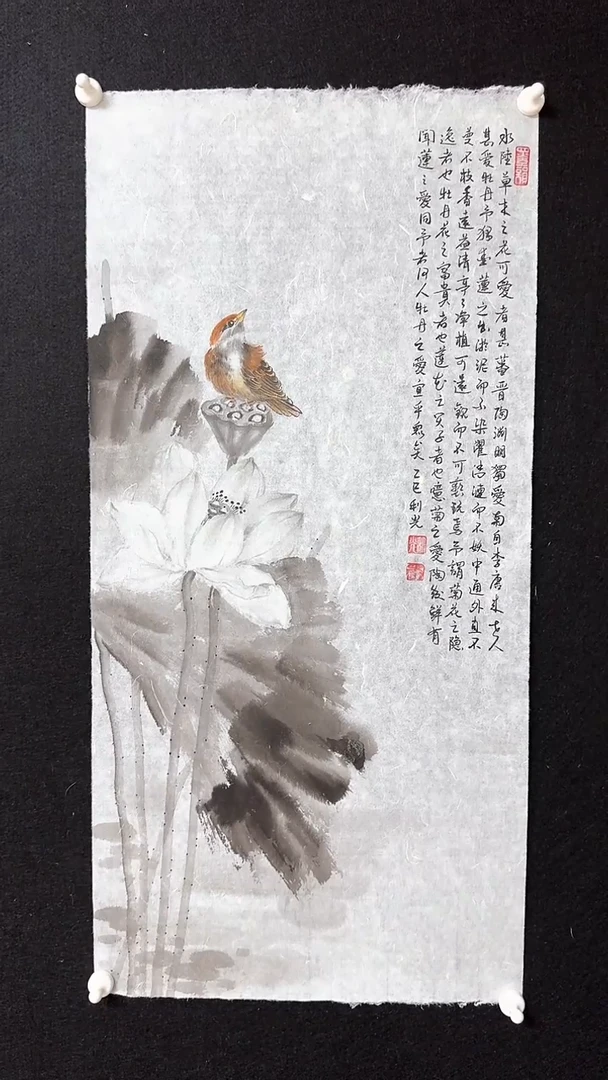 水陸草木之花可愛者甚蕃晋陶淵明獨愛菊自李唐来世人
甚愛牡丹予独愛蓮之出淤泥而不染濯清漣而不妖中通外直不
蔓不枝香遠益清亭々净植可遠觀而不可褻玩焉予謂菊花之隐
逸者也牡丹花之富貴者也蓮花之君子者也噫菊之愛陶後鲜有
聞蓮之愛同予者何人牡丹之愛宜乎衆矣 乙巳利光